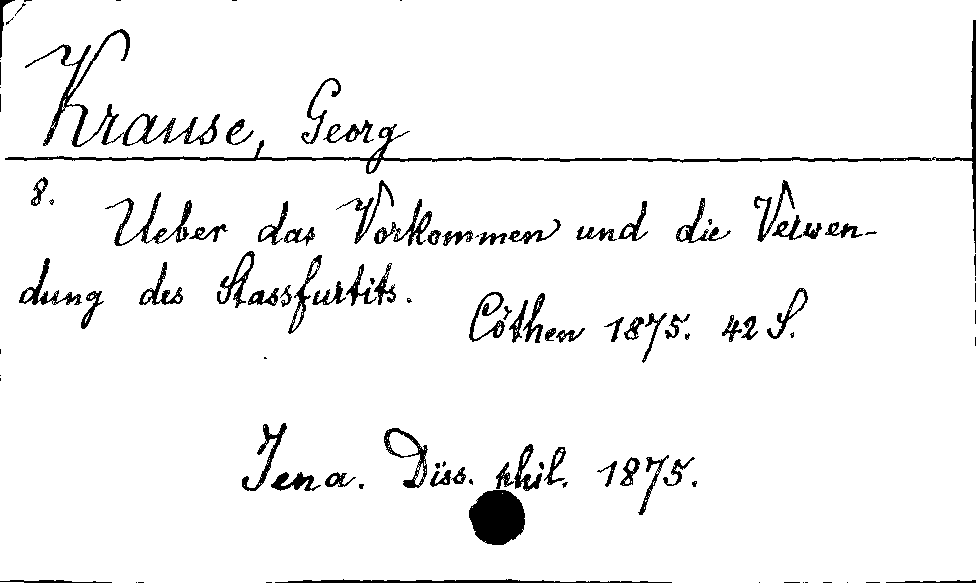 Krause, Georg
8. Ueber das Vorkommen und die Verwen-
dung des Stassfurtits.
Cöthen 1875. 42 S.
Jena. Diss. phil. 1875.